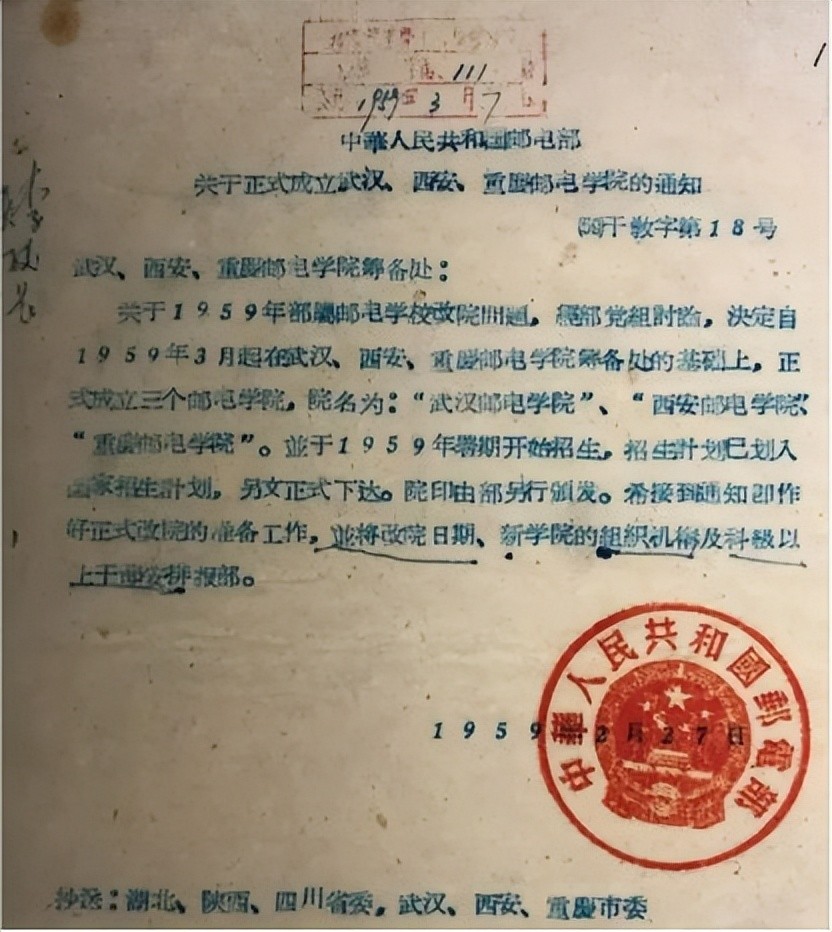 111
1959 3月7
中華人民共和国邮电部
关于正式成立武汉、西安、重慶邮电学院的通知
(59)干敎字第18号
武汉、西安、重慶邮电学院筹备处：
关于1959年部屬邮电学校改院問題，經部党組討論，决定自
1959年3月起在武汉、西安、重慶邮电学院筹备处的基础上，正
式成立三个邮电学院，院名为：“武汉邮电学院”、“西安邮电学院”、
“重慶邮电学院”。並于1959年暑期开始招生，招生計划已划入
国家招生計划，另文正式下达。院印由部另行頒发。希接到通知即作
好正式改院的准备工作，並将改院日期、新学院的組织机構及科級以
上干部安排报部。
1959 2月27日
中華人民共和國郵電部
抄送：湖北、陕西、四川省委，武汉、西安、重慶市委